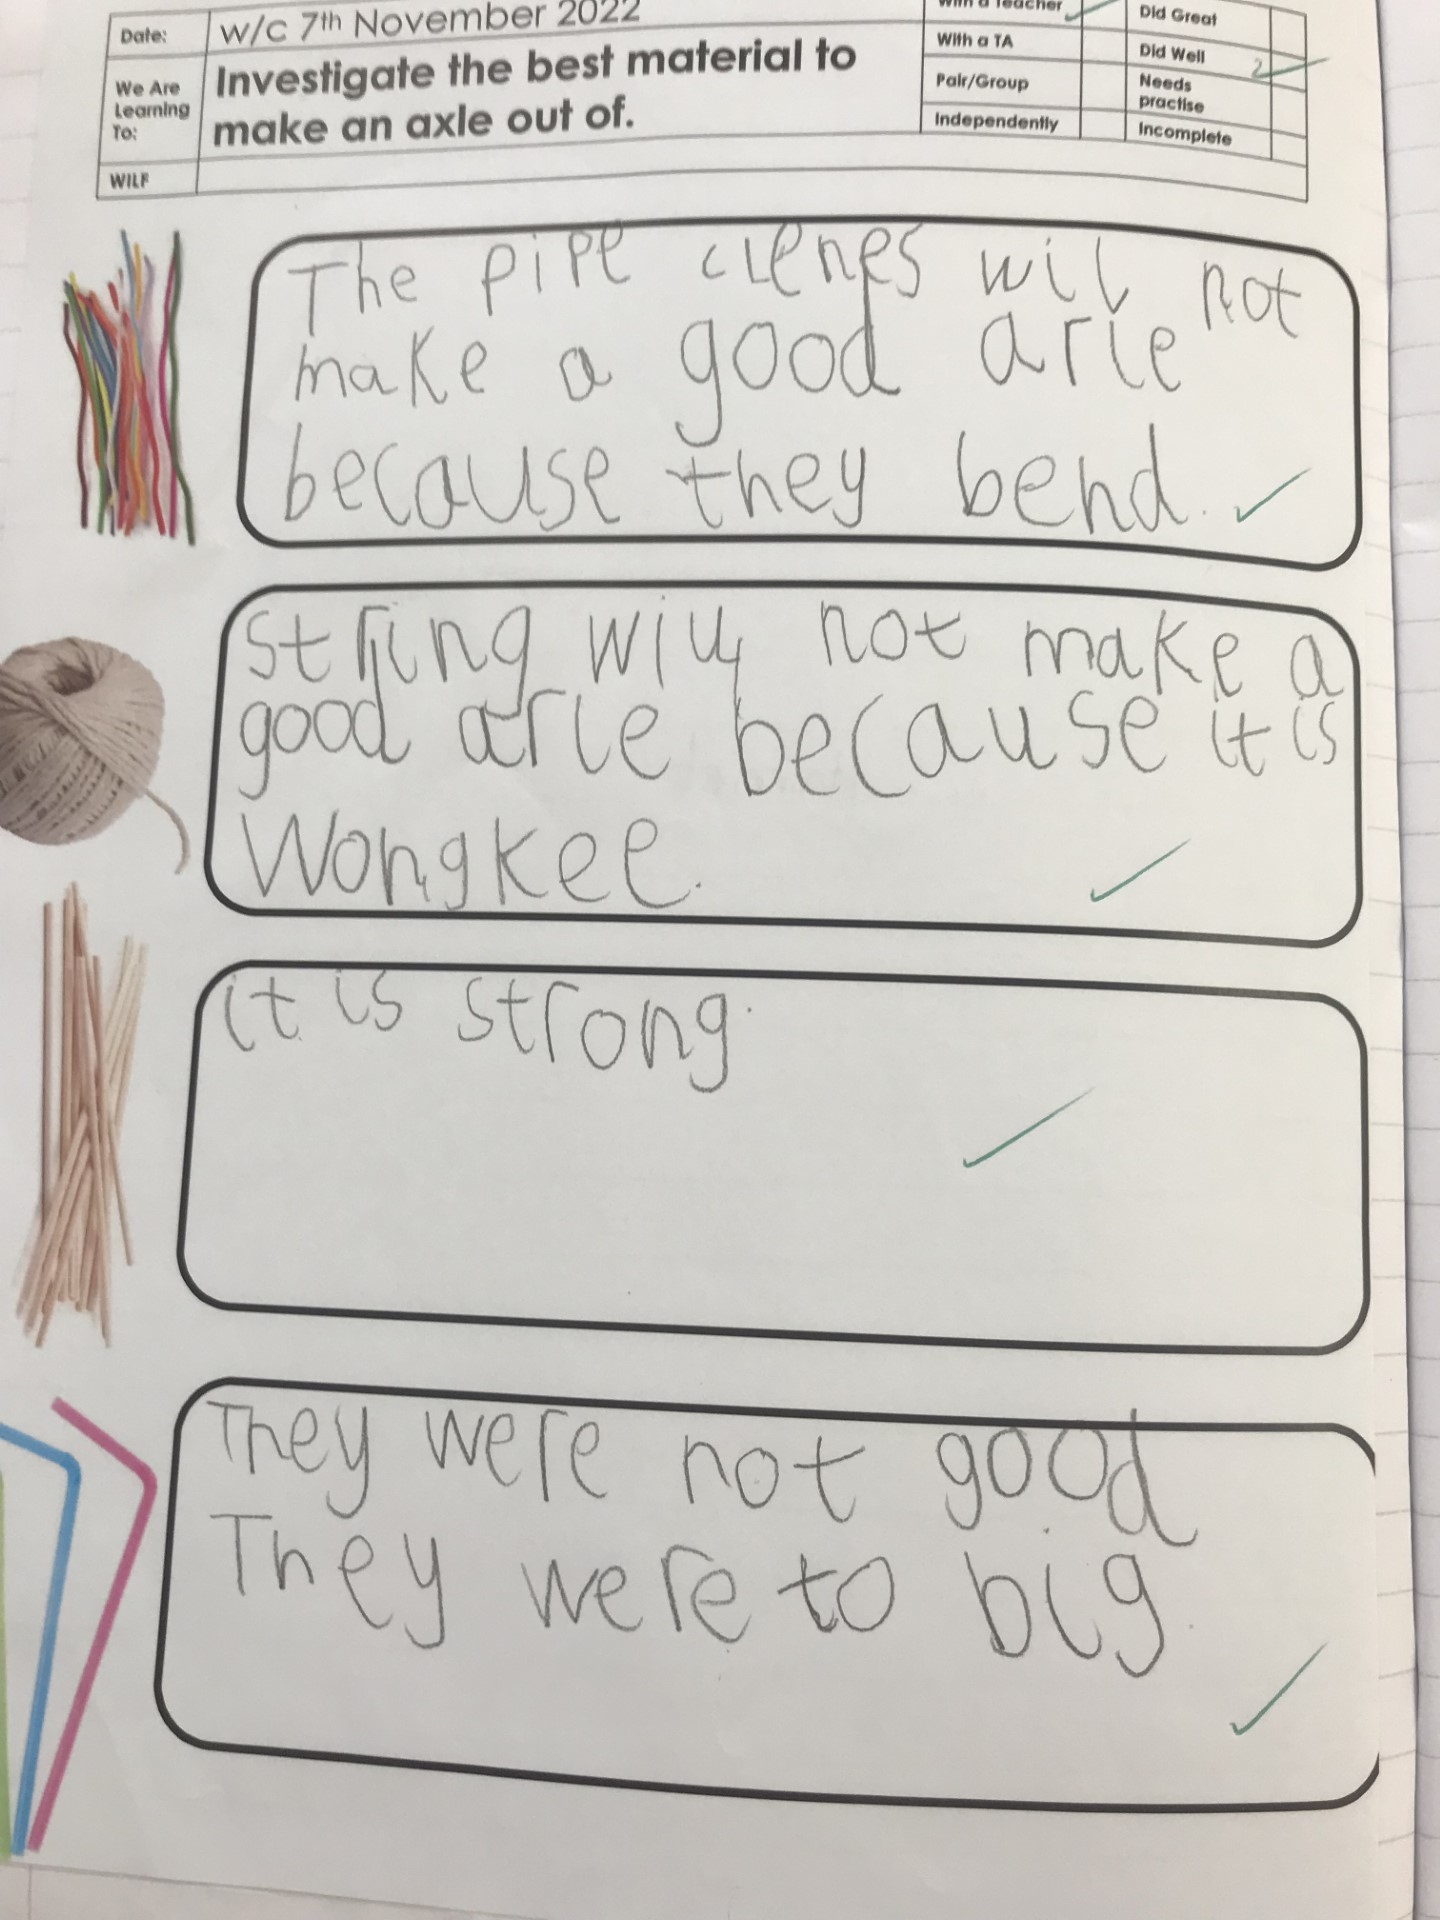 Date:
w/c 7th November 2022
We Are
Learning
To:
Investigate the best material to
make an axle out of.
WILF
With a Teacher
With a TA
Pair/Group
Independently
Did Great
Did Well
2
Needs
practise
Incomplete
The pipe clenes wil not
make a good arle
because they bend.
string will not make a
good arle because it is
Wongkee.
it is strong.
They were not good
They were to big.